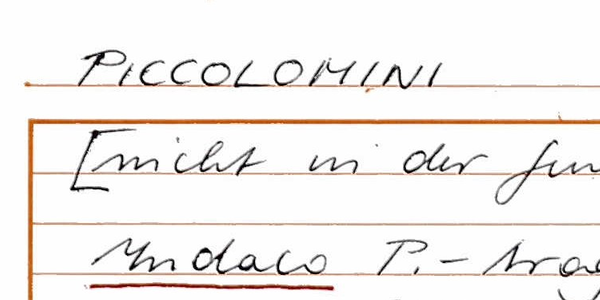 PICCOLOMINI
[nicht in der
Indaco P.-